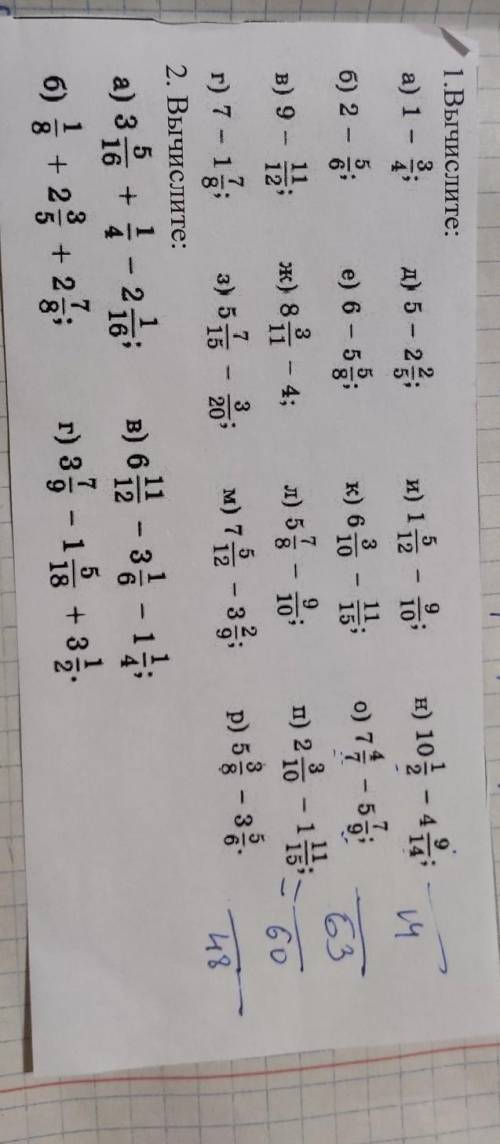 1.Вычислите:
а) 1 − 3/4; д) 5 − 2 2/5; и) 1 5/12 − 9/10; н) 10 1/2 − 4 9/14; 14
б) 2 − 5/6; е) 6 − 5 5/8; к) 6 3/10 − 11/15; о) 7 4/7 − 5 7/9; 63
в) 9 − 11/12; ж) 8 3/11 − 4; л) 5 7/8 − 9/10; п) 2 3/10 − 1 11/15; = 60
г) 7 − 1 7/8; з) 5 7/15 − 3/20; м) 7 5/12 − 3 2/9; р) 5 3/8 − 3 5/6. 48
2. Вычислите:
а) 3 5/16 + 1/4 − 2 1/16; в) 6 11/12 − 3 1/6 − 1 1/4;
б) 1/8 + 2 3/5 + 2 7/8; г) 3 7/9 − 1 5/18 + 3 1/2.